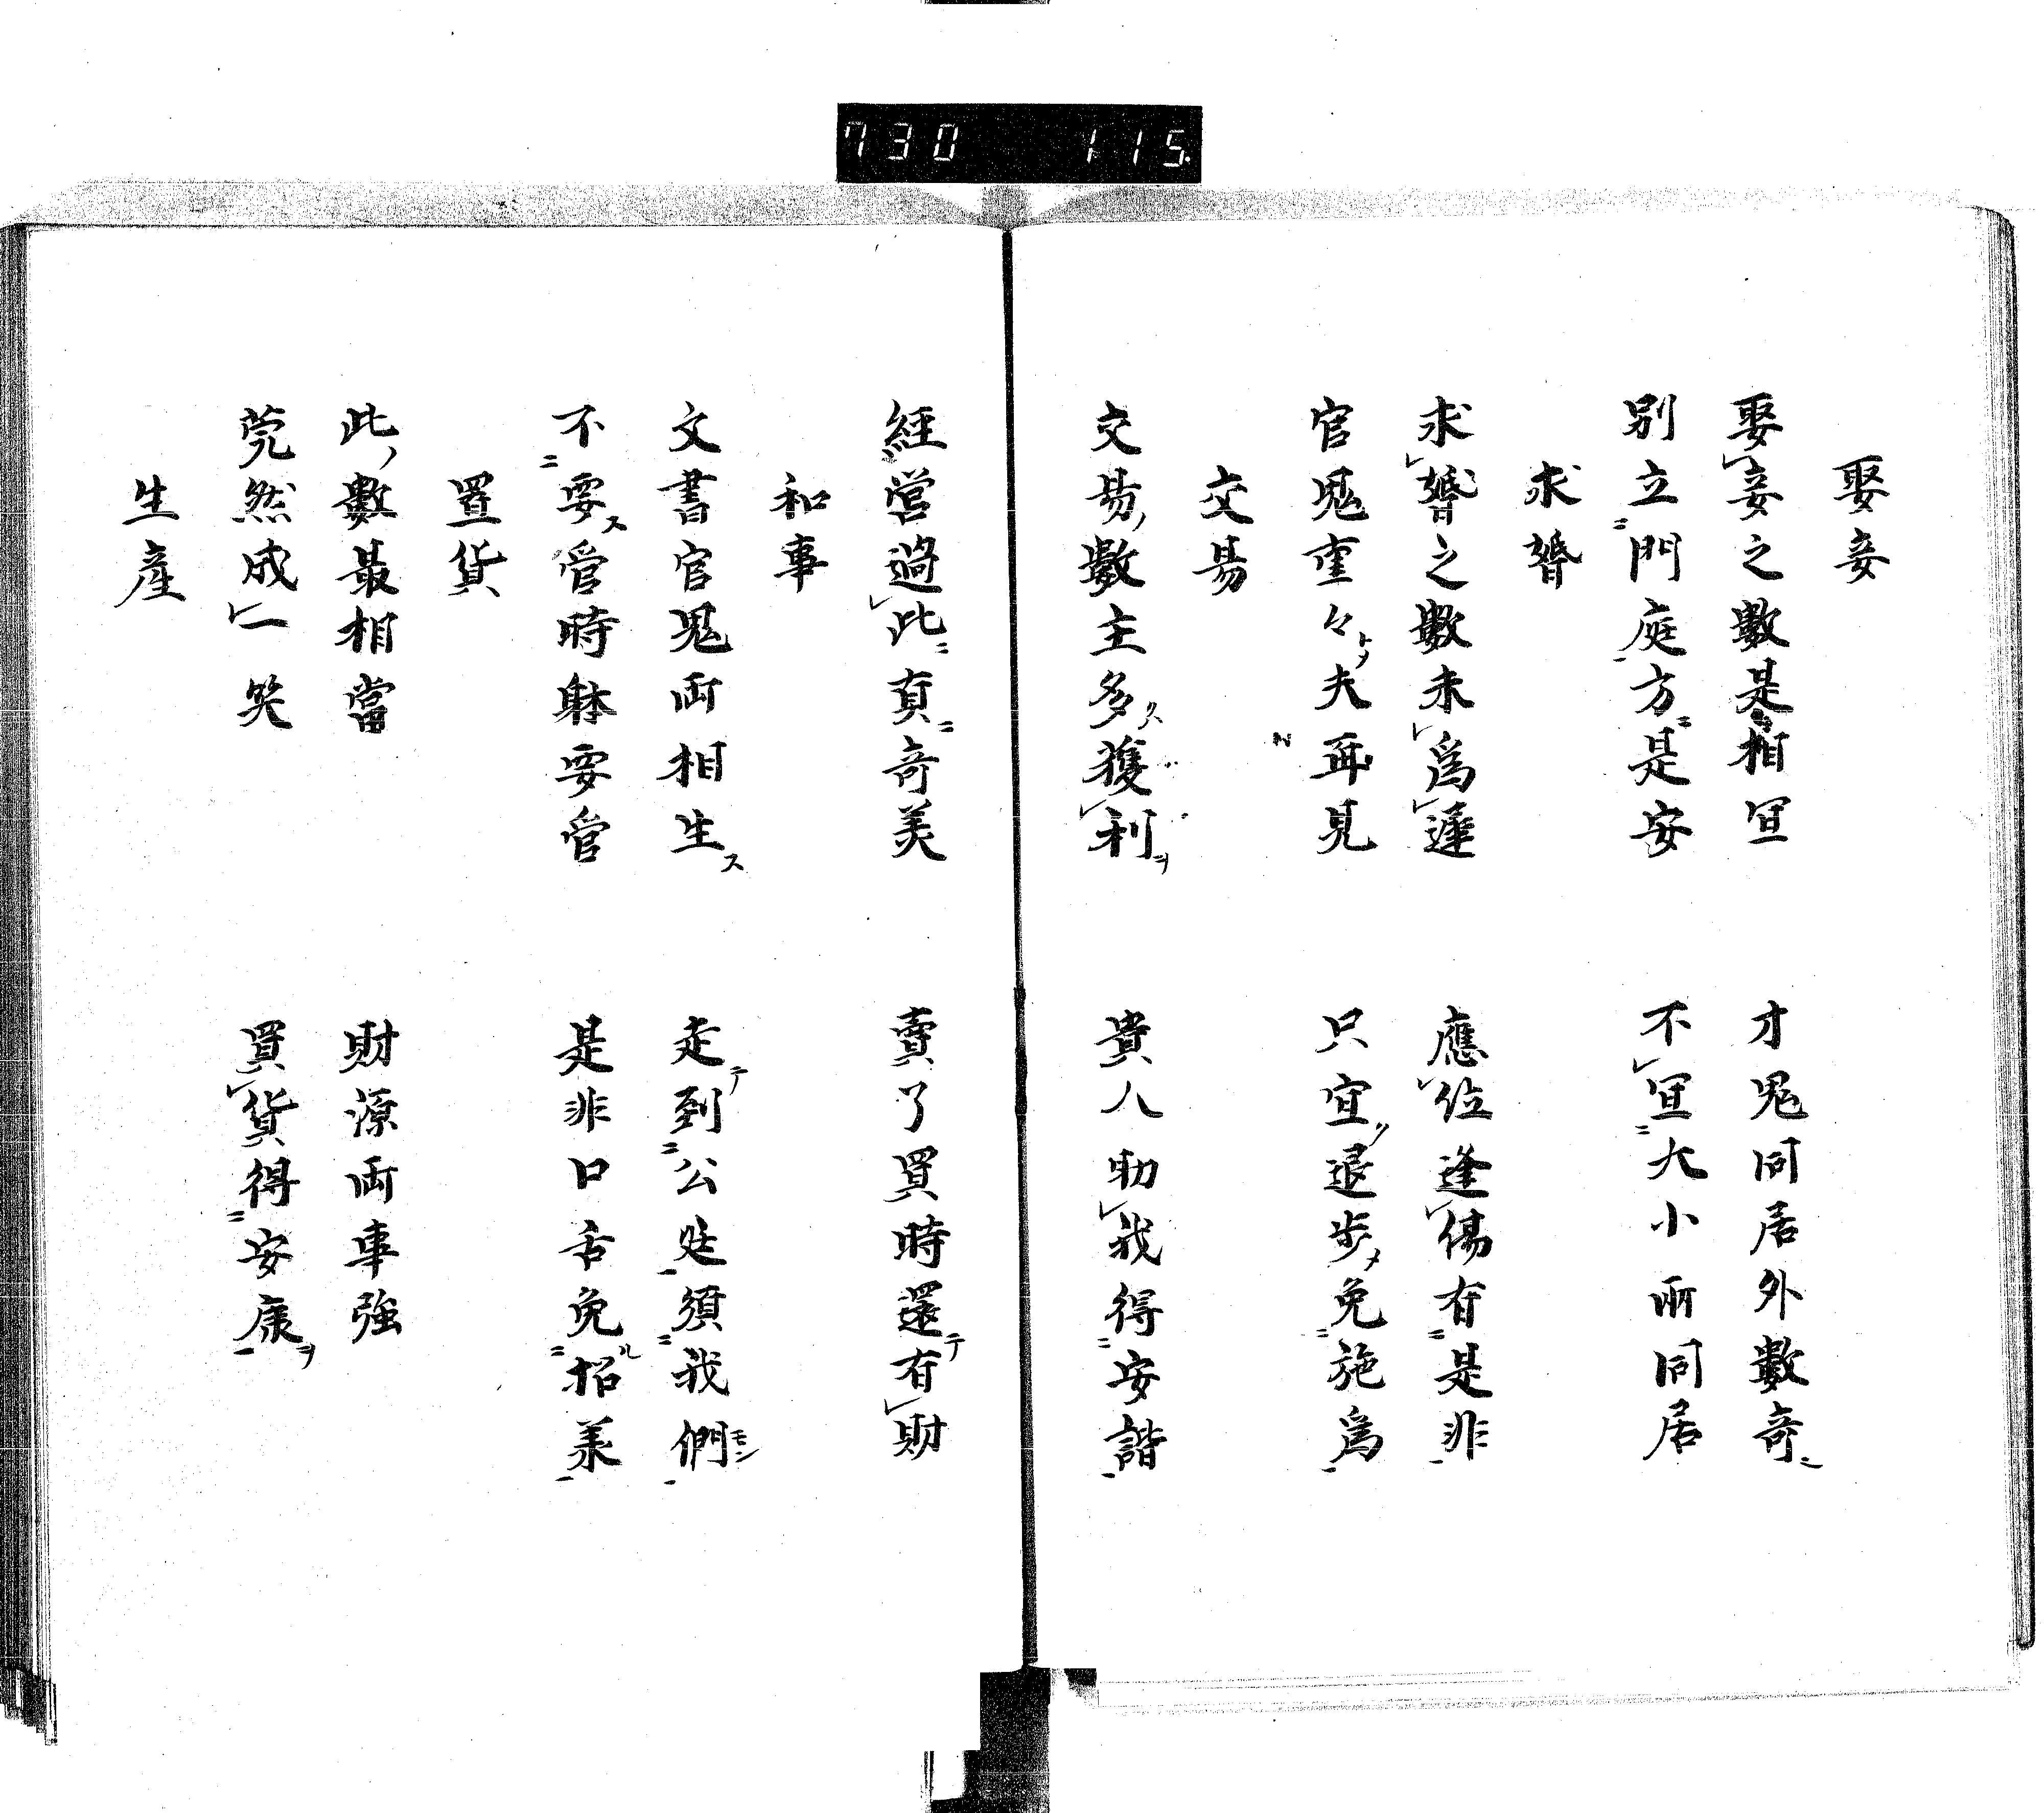 730 115
娶妾
娶妾之數是相冝 才鬼同居外數奇
別立門庭方是安 不冝大小兩同居
求婚
求婚之數未爲遲 應位逢傷有是非
官鬼重々夫再見 只宜退步免施爲
交易
交易數主多獲利 貴人助我得安諧
經營過此眞奇美 賣了買時還有財
和事
文書官鬼両相生 走到公廷須我們
不要管時躰要管 是非口舌免招来
置貨
此數最相當 財源両事強
莞然成一笑 買貨得安康
生産